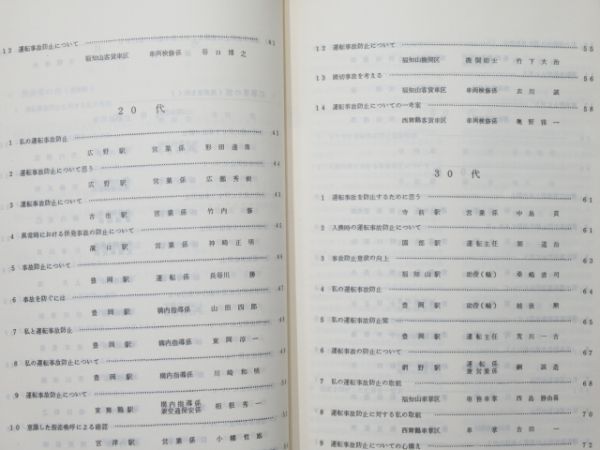 12 運転事故防止について 41
福知山客貨車区 車両検修係 谷口博之
20代
1 私の運転事故防止 43
広野駅 営業係 杉田達彦
2 運転事故防止について思う 44
広野駅 営業係 広瀬秀樹
3 運転事故防止について
古市駅 営業係 竹内
4 異常時における併発事故の防止について
営業係 神崎正明
5 事故防止について
豊岡駅 運転係 長谷川勝
6 事故を防ぐには
豊岡駅 構内指導係 山田四郎
7 私と運転事故防止
豊岡駅 構内指導係 東岡淳一
8 私の運転事故防止について
豊岡駅 構内指導係 川崎和
9 運転事故防止について
東舞鶴駅 構内指導係 兼交通保安係 相根秀一
10 意識した指差喚呼による確認
宮津駅 営業係 小幡哲郎
12 運転事故防止について 55
福知山機関区 機関助士 竹下大治
13 踏切事故を考える 56
福知山客貨車区 車両検修係 誠
14 運転事故防止についての一考察 58
西舞鶴客貨車区 車両検修係 奥野雅一
30代
1 運転事故を防止するために思う 61
寺前駅 営業係 中島
2 入換時の運転事故防止について 61
園部駅 運転主任 治
3 事故防止意欲の向上 63
福知山駅 助役(輸) 浩司
4 私の運転事故防止 64
豊岡駅 助役(輸) 勲
5 私の運転事故防止策 65
豊岡駅 運転主任 荒川一吉
6 運転事故の防止について 67
網野駅 運転係 兼営業係
7 私の運転事故防止の取組 68
福知山車掌区 専務車掌 西島勝由
8 運転事故防止に対する私の取組 70
西舞鶴車掌区 車掌 吉田一
9 運転事故防止についての心構え 72